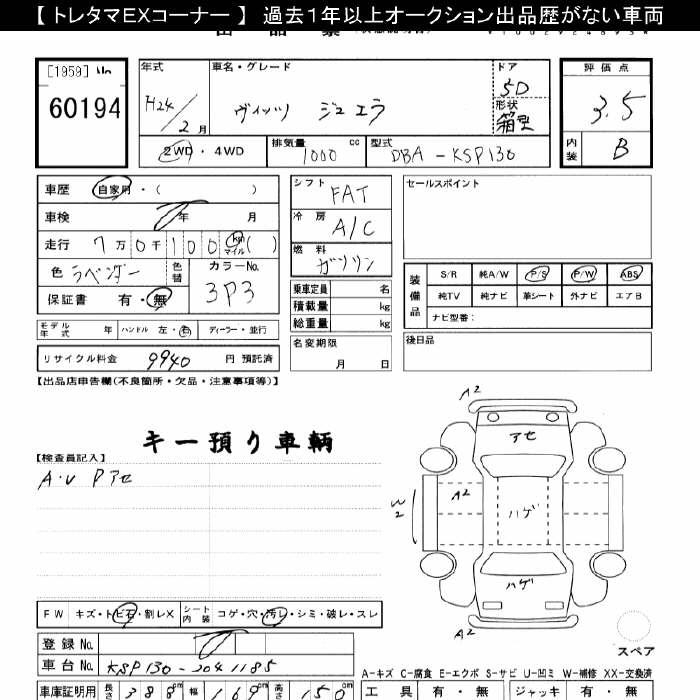 【 トレタマEXコーナー 】 過去1年以上オークション出品歴がない車両
[1959]
60194
年式
H24/2月
車名・グレード
ヴィッツ ジュエラ
ドア
5D
形状
箱型
2WD・4WD
排気量 1000 cc
型式 DBA-KSP130
評価点
3.5
内装 B
車歴 自家用・( )
車検 年 月
走行 7万0千100 km マイル ( )
色 ラベンダー
色替
カラーNo. 3P3
保証書 有・無
モデル年式 年 ハンドル 左・右 ディーラー・並行
リサイクル料金 9940 円 預託済
シフト FAT
冷房 A/C
燃料 ガソリン
乗車定員 名
積載量 kg
総重量 kg
名変期限
月 日
セールスポイント
装備品
S/R 純A/W P/S P/W ABS
純TV 純ナビ 革シート 外ナビ エアB
ナビ型番:
後日品
【出品店申告欄(不良箇所・欠品・注意事項等)】
キー預り車輌
【検査員記入】
A・U Pアセ
A2
アセ
A2
W2
ハゲ
ハゲ
A2
スペア
FW キズ・トビ石・割レX シート内装 コゲ・穴・汚レ・シミ・破レ・スレ
登録No.
車台No. KSP130-2041185
A-キズ C-腐食 E-エクボ S-サビ U-凹ミ W-補修 XX-交換済
車庫証明用 長さ 388cm 幅 169cm 高さ 150cm
工具 有・無 ジャッキ 有・無